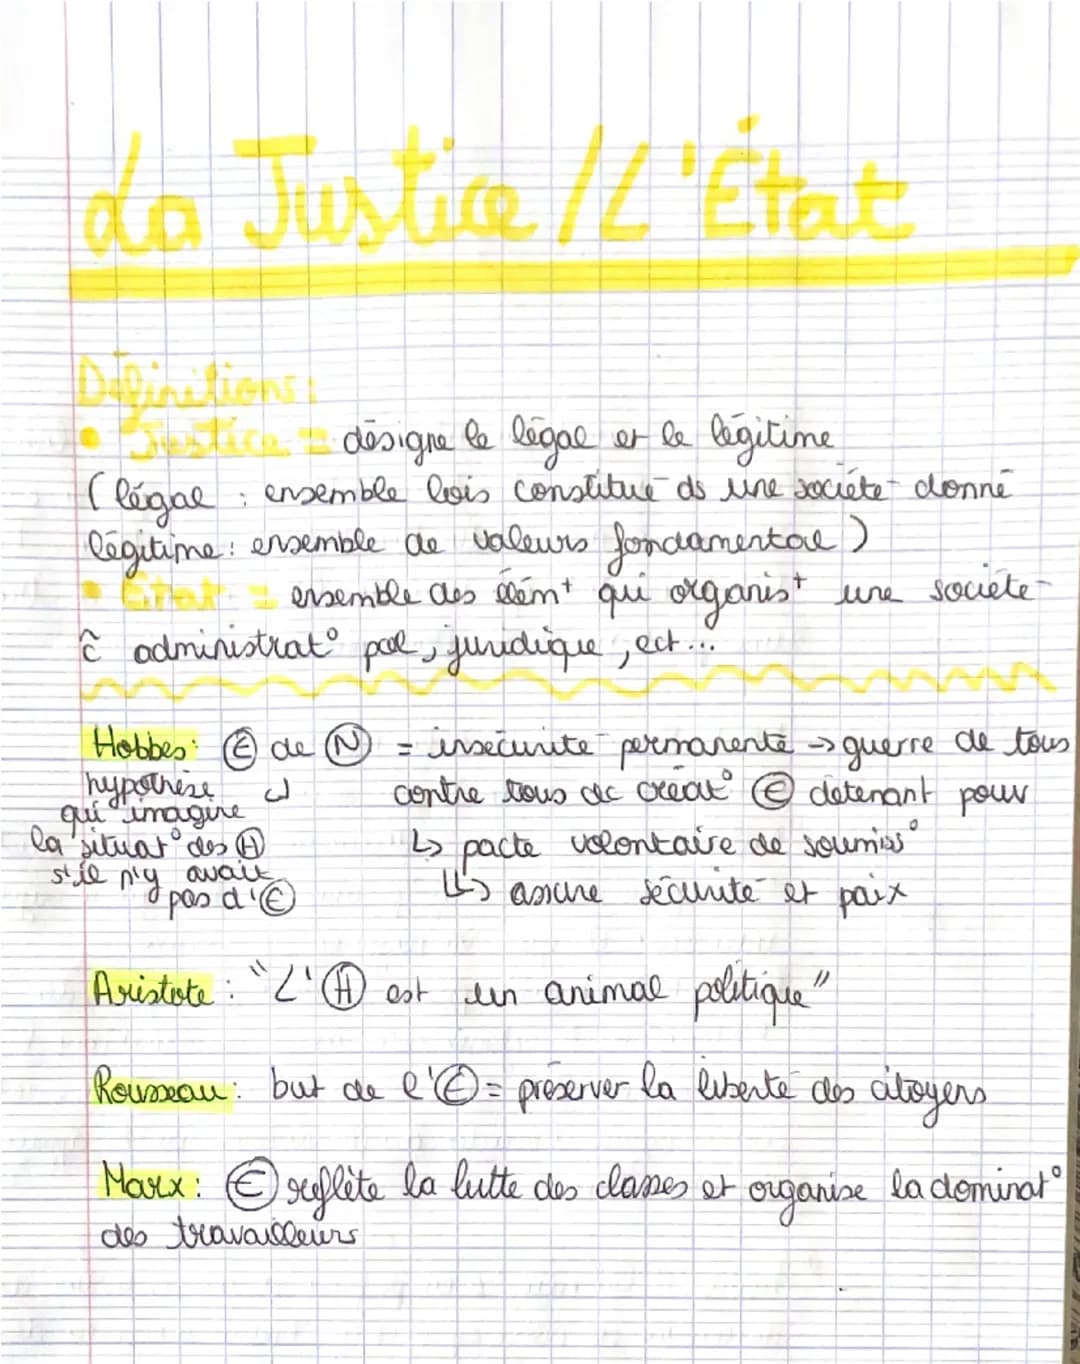 La Justice / L'État
Définitions :
• Justice = désigne le légal et le légitime
( légal : ensemble lois constitué ds une société donné
légitime : ensemble de valeurs fondamentale )
• État = ensemble des élémt qui organist une société
c̄ administrat° pol, juridique, ect...
Hobbes : Ⓔ de Ⓝ = insécurité permanente → guerre de tous
contre tous dc créat° Ⓔ détenant pouv
↳ pacte volontaire de soumiss°
↳ assure sécurité et paix
hypothèse
qui imagine
la situat° des Ⓗ
s'il n'y avait
pas d'Ⓔ
Aristote : "L'Ⓗ est un animal politique"
Rousseau : but de l'Ⓔ = préserver la liberté des citoyens
Marx : Ⓔ reflète la lutte des classes et organise la dominat°
des travailleurs